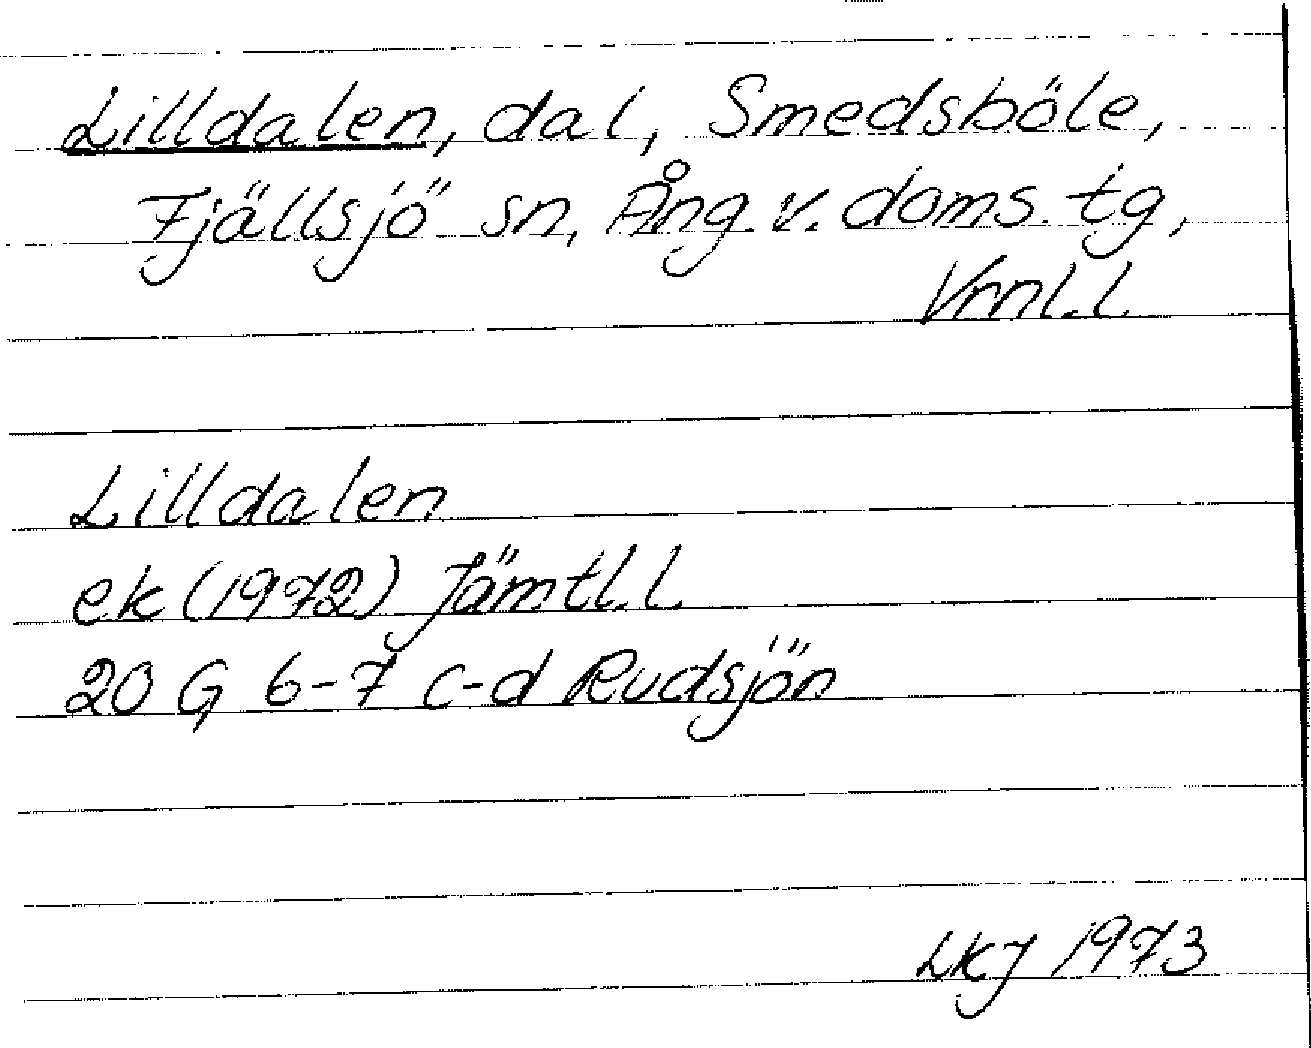 Lilldalen, dal, Smedsböle,
Fjällsjö sn, Ång. v. doms. tg,
Vrnl. l.
Lilldalen
ek (1972) Jämtl. l.
20 G 6-7 c-d Rudsjön
LKJ 1973